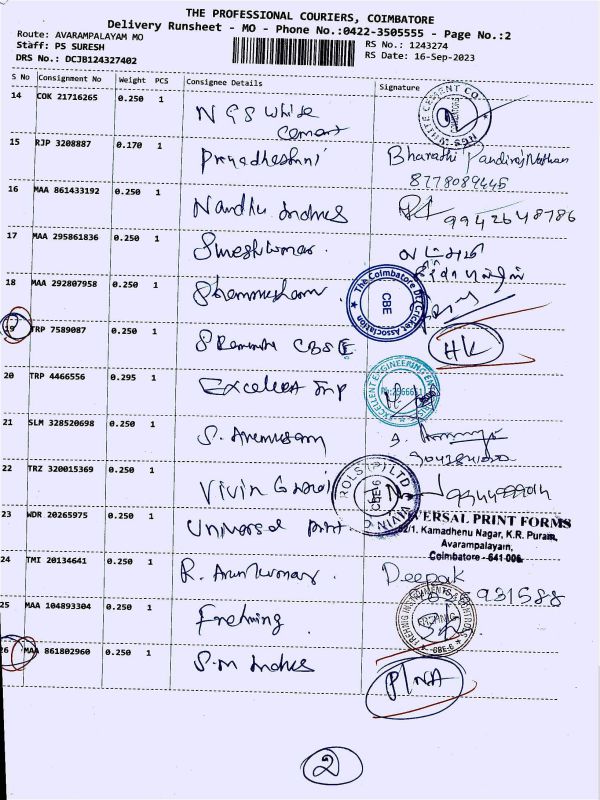 THE PROFESSIONAL COURIERS, COIMBATORE
Delivery Runsheet - MO - Phone No.:0422-3505555 - Page No.:2
Route: AVARAMPALAYAM MO
Staff: PS SURESH
DRS No.: DCJB124327402
RS No.: 1243274
RS Date: 16-Sep-2023
S No Consignment No Weight PCS Consignee Details Signature
14 COK 21716265 0.250 1 NGS White
Cement
NGS WHITE CEMENT CO
15 RJP 3208887 0.170 1 Priyadharshni Bharathi
8778089445
16 MAA 861433192 0.250 1 Nandhu Indhus 9942648786
17 MAA 295861836 0.250 1 Sureshkumar
18 MAA 292807958 0.250 1 Shanmugham
The Coimbatore Dt. Cricket Association
CBE
19 TRP 7589087 0.250 1 CBSE HK
20 TRP 4466556 0.295 1 Excellent Imp
EXCELLENT ENGINEERING
21 SLM 328520698 0.250 1 S. Arumugam
22 TRZ 320015369 0.250 1 Vivin
ROLS (P) LTD
CBE-6
23 WDR 20265975 0.250 1 Universal print
UNIVERSAL PRINT FORMS
62/1. Kamadhenu Nagar, K.R. Puram,
Avarampalayam,
Coimbatore - 641 006.
24 TMI 20134641 0.250 1 R. Arunkumar Deepak
931588
25 MAA 104893304 0.250 1 Frehning
FREHNING INSTRUMENTS & CONTROLS
CBE-6
26 MAA 861802960 0.250 1 S.M Indus P/NA
2